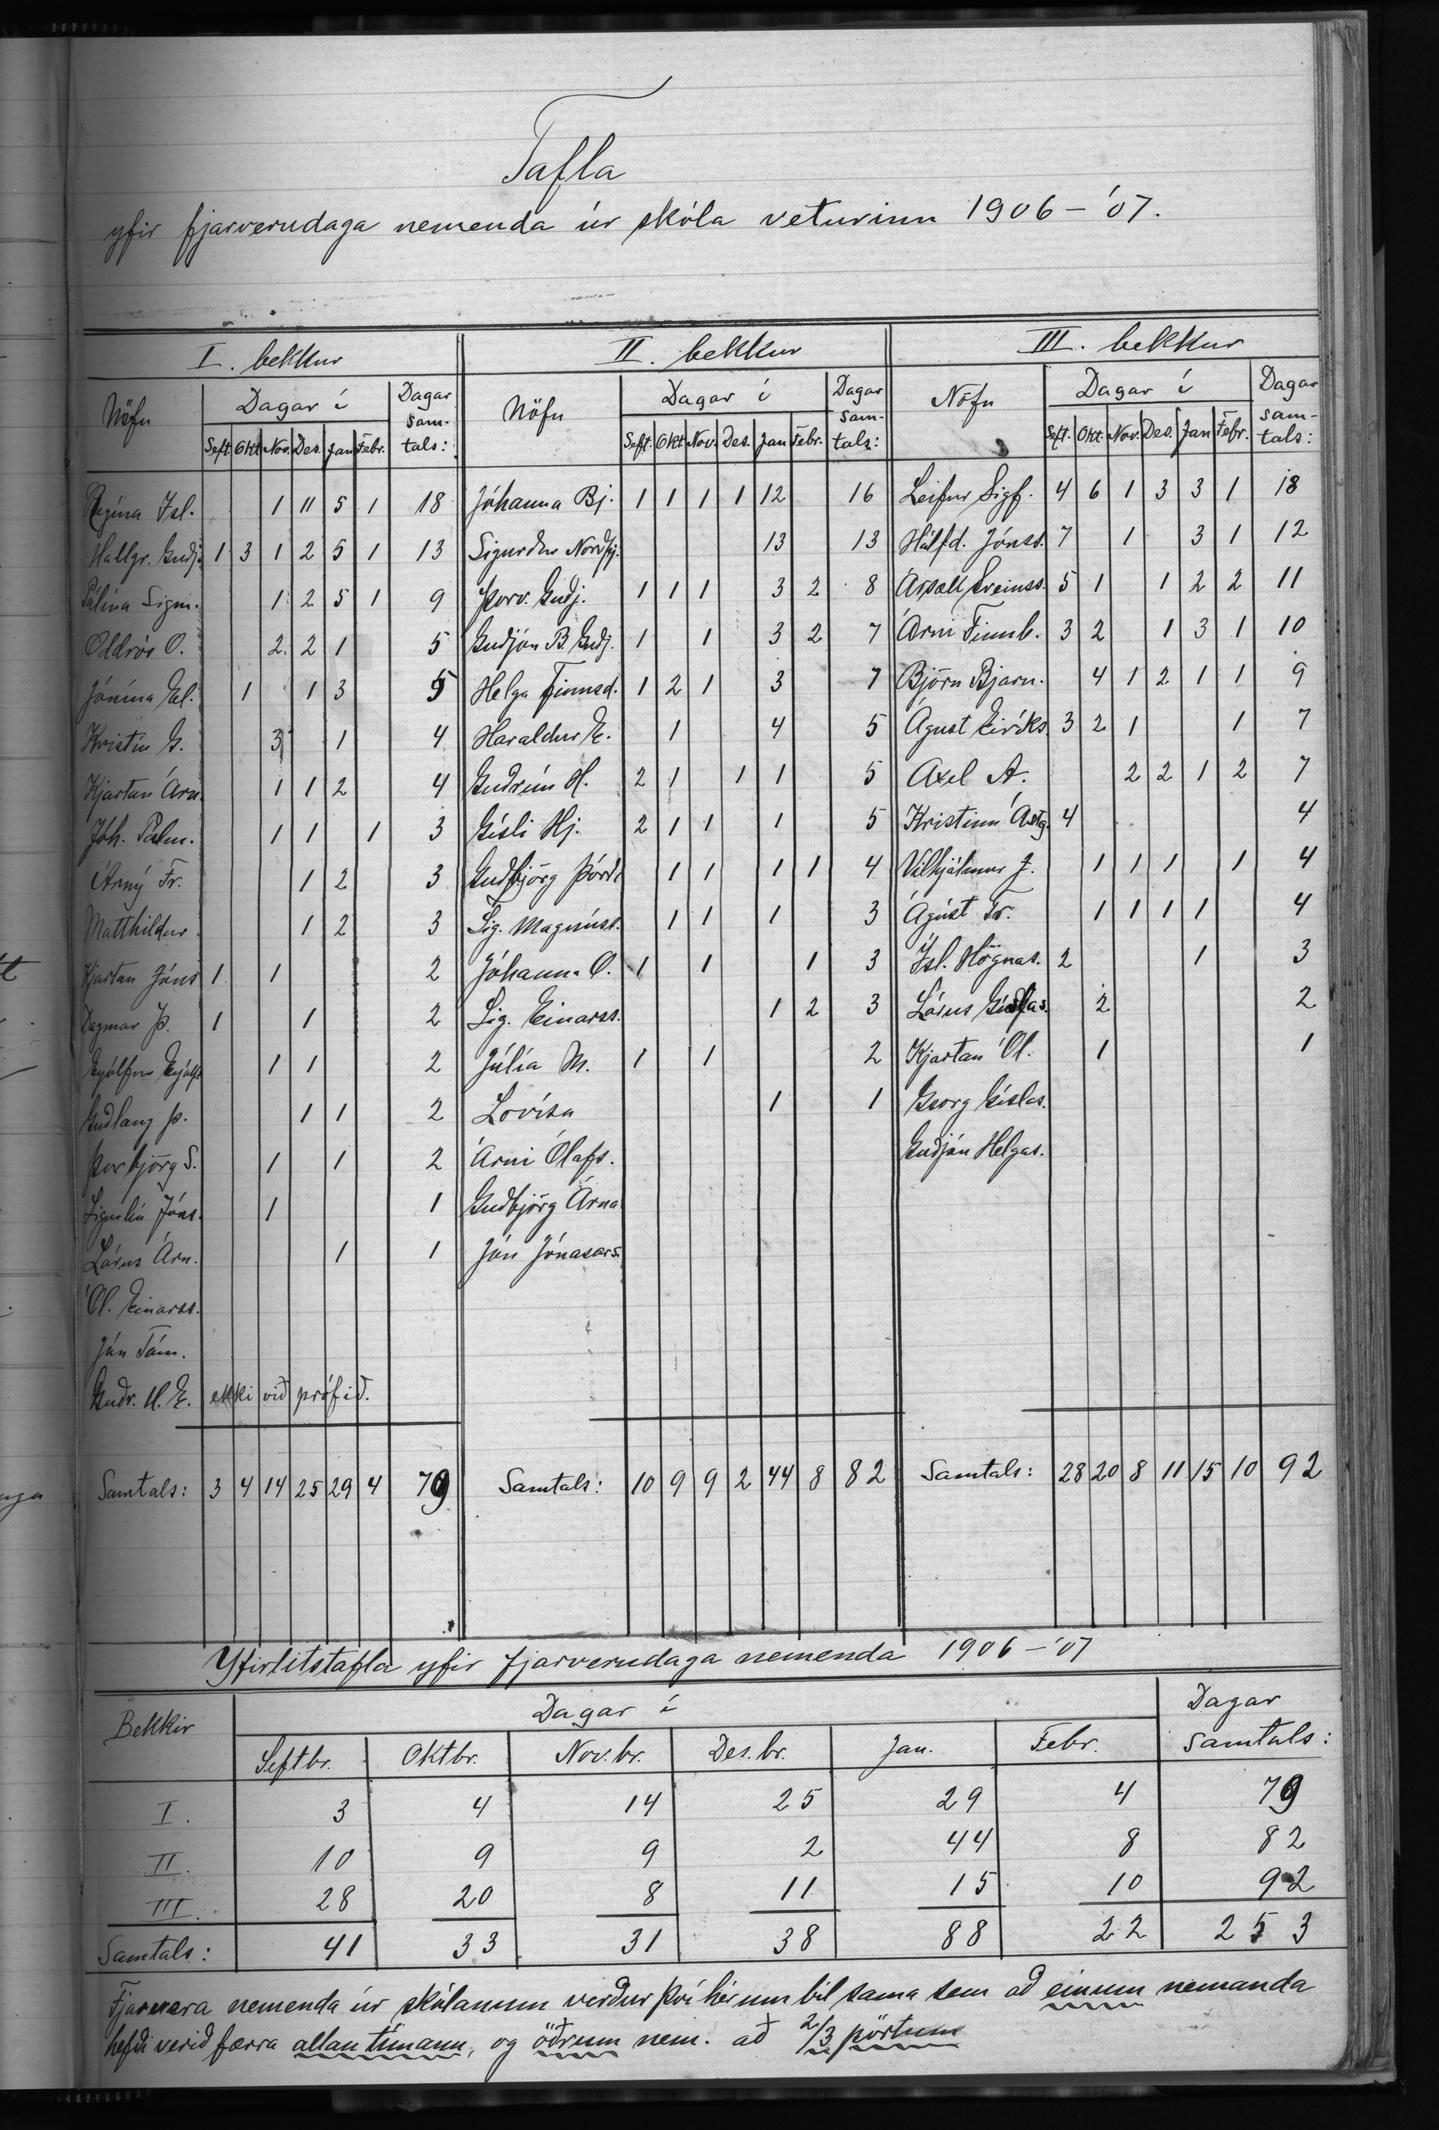 Tafla
yfir fjarverudaga nemenda úr skóla veturinn 1906 – '07.
I. bekkur
Nöfn Dagar í Dagar sam-tals:
Sept. Okt. Nov. Des. Jan Febr.
Regína Ísl. 1 11 5 1 18
Hallgr. Guðj. 1 3 1 2 5 1 13
Pálína Sigm. 1 2 5 1 9
Oddrós O. 2 2 1 5
Jónína El. 1 1 3 5
Kristín G. 3 1 4
Kjartan Árn. 1 1 2 4
Jóh. Pálm. 1 1 1 3
Árný Fr. 1 2 3
Matthildur 1 2 3
Kjartan Jóns 1 1 2
Dagmar Þ. 1 1 2
Eyólfur Eyjólfs 1 1 2
Guðlaug Þ. 1 1 2
Þorbjörg S. 1 1 2
Sigurlín Jóns. 1 1
Lárus Árn. 1 1
Ól. Einarss.
Jón Tóm.
Guðr. H. E. ekki við prófið.
Samtals: 3 4 14 25 29 4 79
II. bekkur
Nöfn Dagar í Dagar sam-tals:
Sept. Okt. Nov. Des. Jan Febr.
Jóhanna Bj. 1 1 1 1 12 16
Sigurður Norðfj. 13 13
Þorv. Guðj. 1 1 1 3 2 8
Guðjón B. Guðj. 1 1 3 2 7
Helga Finnsd. 1 2 1 3 7
Haraldur E. 1 4 5
Guðrún H. 2 1 1 1 5
Gísli Hj. 2 1 1 1 5
Guðbjörg Þórð. 1 1 1 1 4
Sig. Magnúss. 1 1 1 3
Jóhanna O. 1 1 1 3
Sig. Einarss. 1 2 3
Júlía M. 1 1 2
Lovísa 1 1
Árni Ólafs.
Guðbjörg Árna
Jón Jónasars.
Samtals: 10 9 9 2 44 8 82
III. bekkur
Nöfn Dagar í Dagar sam-tals:
Sept. Okt. Nov. Des. Jan Febr.
Leifur Sigf. 4 6 1 3 3 1 18
Hálfd. Jónss. 7 1 3 1 12
Ársæll Sveinss. 5 1 1 2 2 11
Árni Finnb. 3 2 1 3 1 10
Björn Bjarn. 4 1 2 1 1 9
Ágúst Eiríks. 3 2 1 1 7
Axel A. 2 2 1 2 7
Kristinn Ástg. 4 4
Vilhjálmur J. 1 1 1 1 4
Ágúst Fr. 1 1 1 1 4
Ísl. Högnas. 2 1 3
Lárus Gíslas. 2 2
Kjartan Ól. 1 1
Georg Gíslas.
Guðjón Helgas.
Samtals: 28 20 8 11 15 10 92
Yfirlitstafla yfir fjarverudaga nemenda 1906 – '07
Bekkir Dagar í Dagar samtals:
Septbr. Oktbr. Nov.br. Des.br. Jan. Febr.
I. 3 4 14 25 29 4 79
II. 10 9 9 2 44 8 82
III. 28 20 8 11 15 10 92
Samtals: 41 33 31 38 88 22 253
Fjarvera nemenda úr skólanum verður því hér um bil sama sem að einum nemanda
hefði verið færra allan tímann, og öðrum nem. að 2/3 pörtum